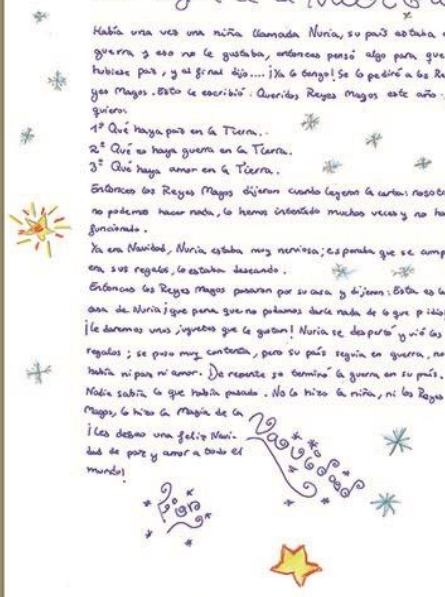 Había una vez una niña llamada Nuria, su país estaba
guerra y eso no le gustaba, entonces pensó algo para que
hubiese paz, y al final dijo.... ¡Ya lo tengo! Se lo pediré a los Re
yes Magos. Esto le escribió: Queridos Reyes Magos este año
quiero:
1º Qué haya paz en la Tierra..
2º Qué no haya guerra en la Tierra.
3º Qué haya amor en la Tierra.
Entonces los Reyes Magos dijeron cuando leyeron la carta: nosot
no podemos hacer nada, lo hemos intentado muchas veces y no ha
funcionado.
Ya era Navidad, Nuria estaba muy nerviosa; esperaba que se cump
era sus regalos, lo estaba deseando.
Entonces los Reyes Magos pasaron por su casa y dijeron: Esta es la
casa de Nuria ¡que pena que no podamos darle nada de lo que pidió
¡le daremos unos juguetes que le gustan! Nuria se despertó y vió los
regalos; se puso muy contenta, pero su país seguía en guerra, no
había ni paz ni amor. De repente se terminó la guerra en su país.
Nadie sabía lo que había pasado. No lo hizo la niña, ni los Reyes
Magos, lo hizo la Magia de la
Navidad
¡Les deseo una feliz Navi-
dad de paz y amor a todo el
mundo!
Fin